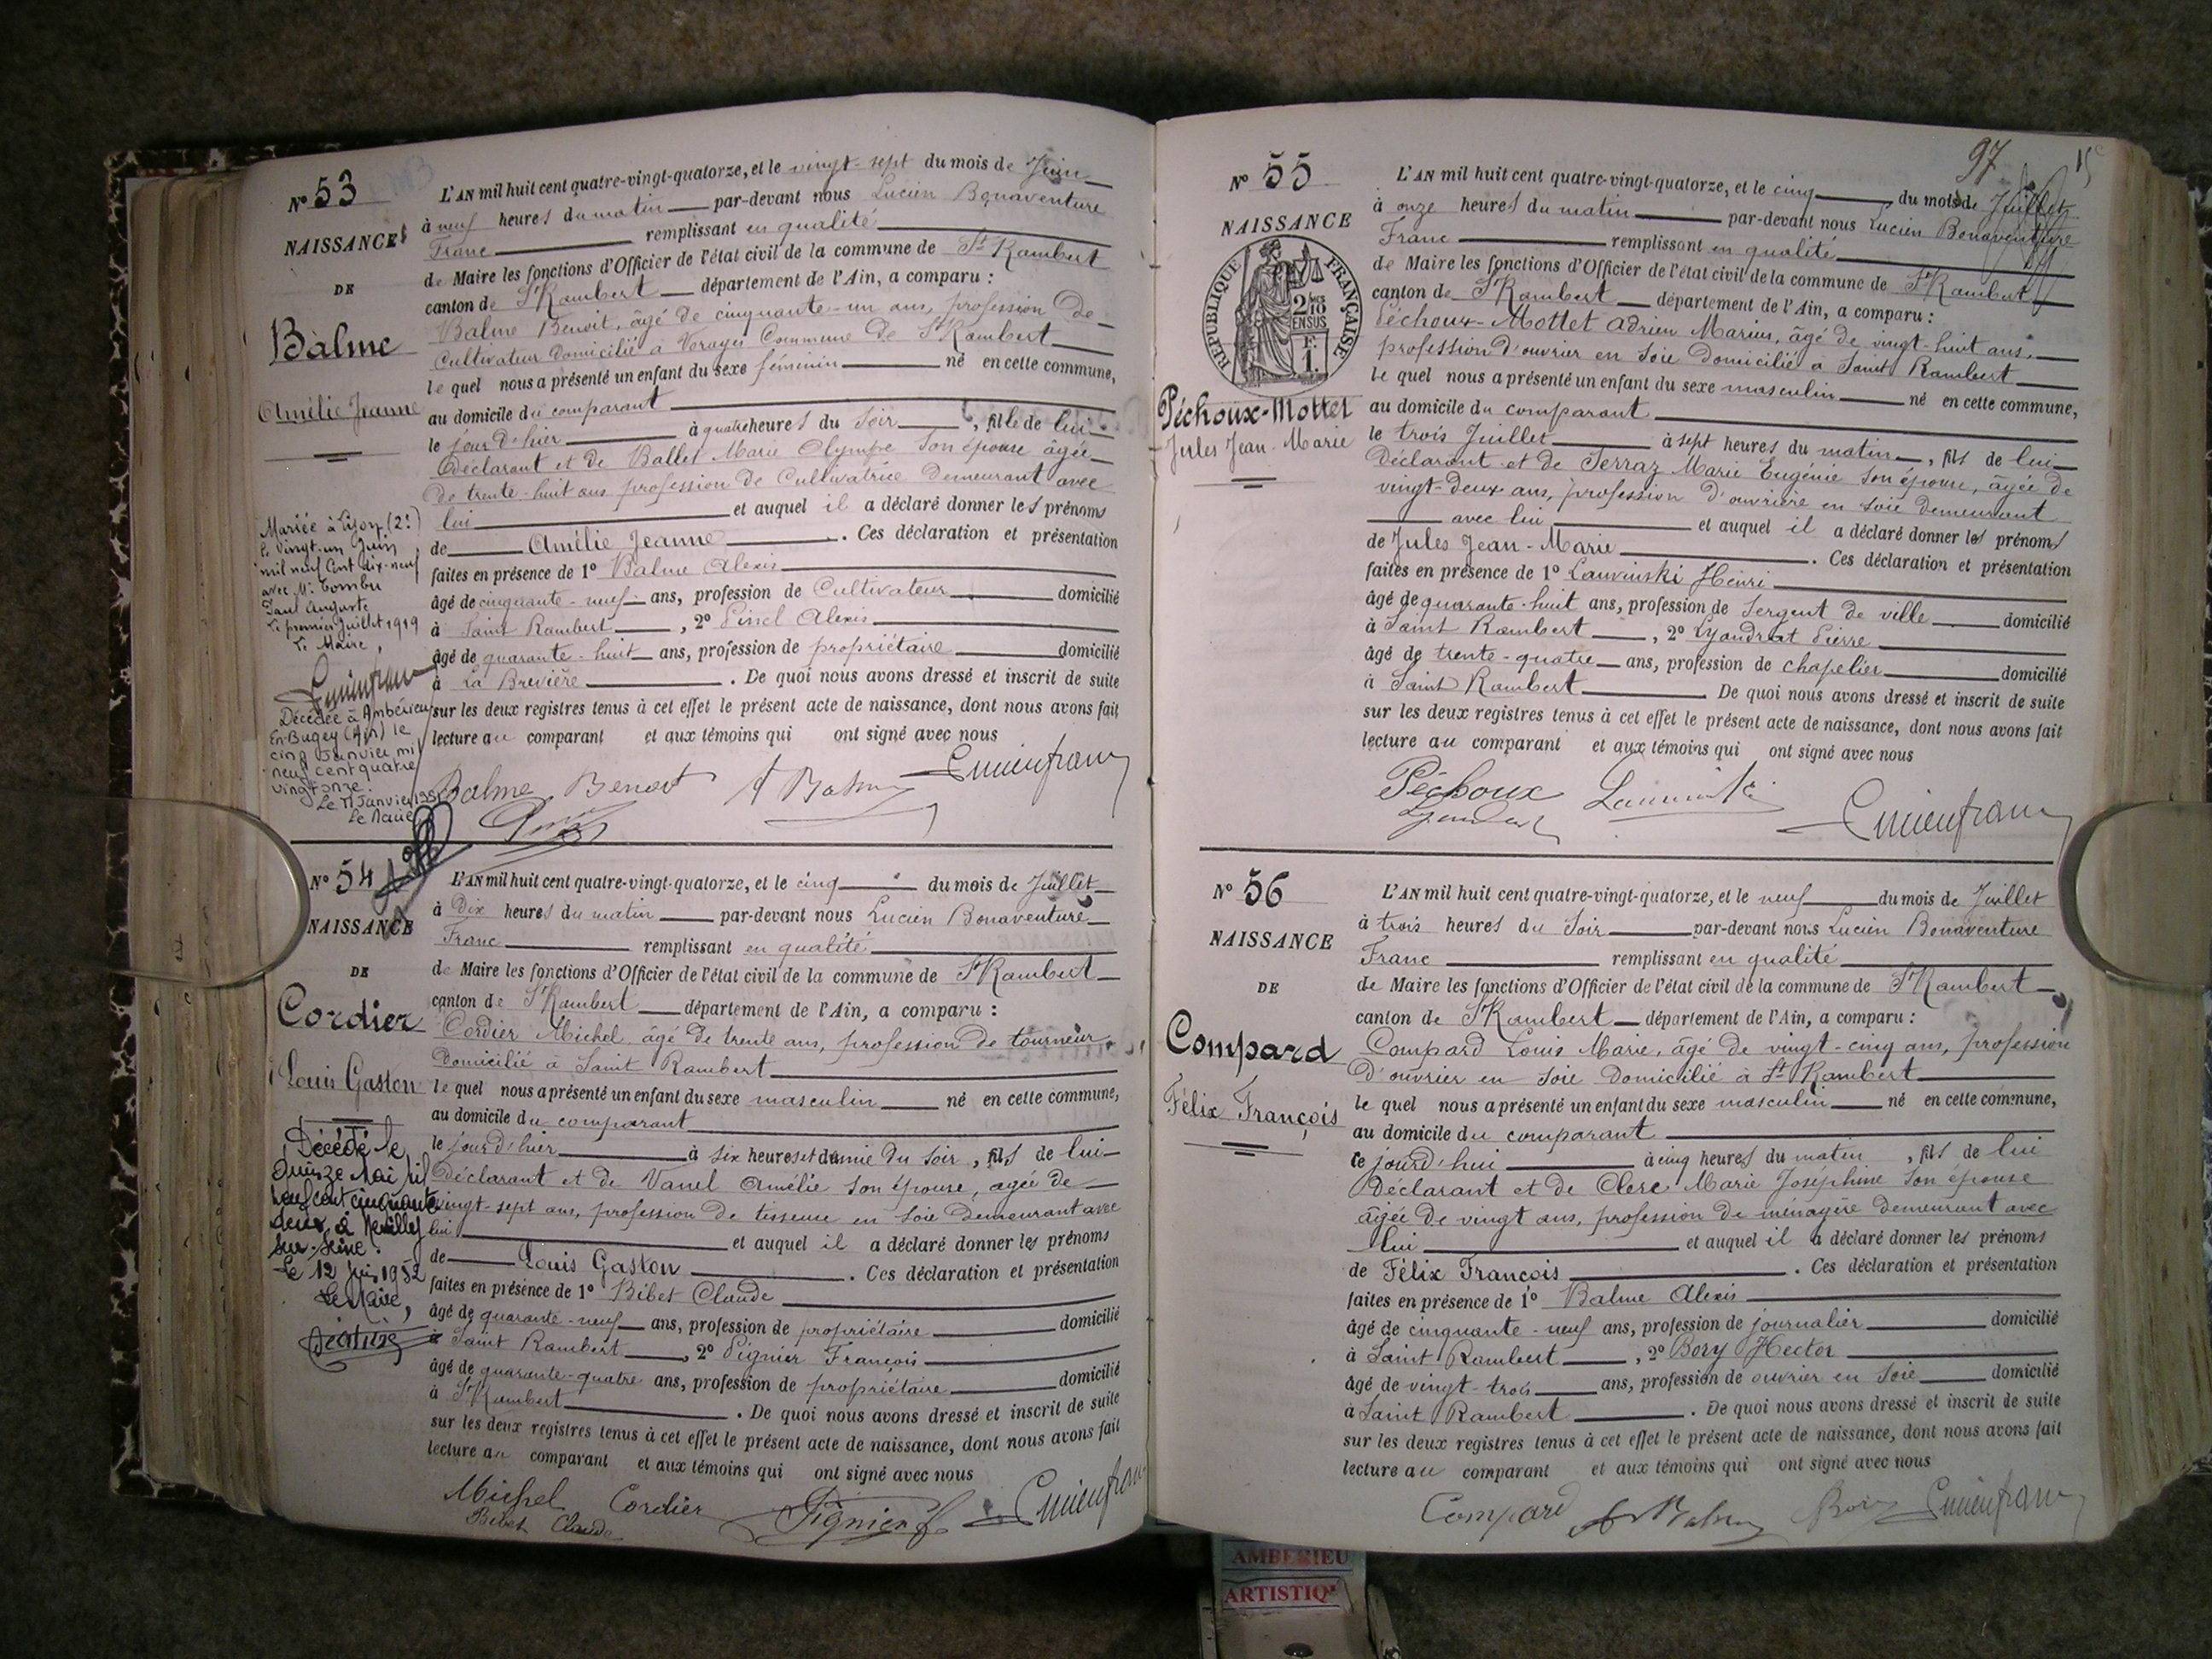 N° 53
NAISSANCE
DE
Balme
Amélie Jeanne
Mariée à Lyon (2e)
le vingt-un Juin
mil neuf cent dix-neuf
avec Mr Tombu
Paul Auguste
Le premier Juillet 1919
Le Maire,
Décédée à Ambérieu
En-Bugey (Ain) le
cinq Janvier mil
neuf cent quatre
vingt onze.
Le 11 Janvier 1991
Le Maire
L'AN mil huit cent quatre-vingt-quatorze, et le vingt-sept du mois de Juin
à neuf heures du matin par-devant nous Lucien Bonaventure
Franc remplissant en qualité
de Maire les fonctions d'Officier de l'état civil de la commune de St Rambert
canton de St Rambert département de l'Ain, a comparu :
Balme Benoit, âgé de cinquante-un ans, profession de
Cultivateur domicilié à Commune de St Rambert
le quel nous a présenté un enfant du sexe féminin né en cette commune,
au domicile du comparant
le jour d'hier à quatre heures du soir, fille de lui
déclarant et de Ballet Marie Olympe son épouse âgée
de trente-huit ans profession de Cultivatrice demeurant avec
lui et auquel il a déclaré donner les prénoms
de Amélie Jeanne. Ces déclaration et présentation
faites en présence de 1° Balme Alexis
âgé de cinquante-neuf ans, profession de Cultivateur domicilié
à Saint Rambert, 2° Pinel Alexis
âgé de quarante-huit ans, profession de propriétaire domicilié
à La Brevière. De quoi nous avons dressé et inscrit de suite
sur les deux registres tenus à cet effet le présent acte de naissance, dont nous avons fait
lecture au comparant et aux témoins qui ont signé avec nous
Balme Benoit A Balme Lucien franc
N° 54
NAISSANCE
DE
Cordier
Louis Gaston
Décédé le
quinze Mai mil
neuf cent cinquante
deux, à Neuilly
sur-Seine.
Le 12 Juin 1952
Le Maire,
L'AN mil huit cent quatre-vingt-quatorze, et le cinq du mois de Juillet
à Dix heures du matin par-devant nous Lucien Bonaventure
Franc remplissant en qualité
de Maire les fonctions d'Officier de l'état civil de la commune de St Rambert
canton de St Rambert département de l'Ain, a comparu :
Cordier Michel âgé de trente ans, profession de tourneur
Domicilié à Saint Rambert
le quel nous a présenté un enfant du sexe masculin né en cette commune,
au domicile du comparant
le jour d'hier à six heures et demie du soir, fils de lui
déclarant et de Vanel Amélie son épouse, agée de
vingt-sept ans, profession de tisseuse en soie demeurant avec
lui et auquel il a déclaré donner les prénoms
de Louis Gaston. Ces déclaration et présentation
faites en présence de 1° Bibet Claude
âgé de quarante-neuf ans, profession de propriétaire domicilié
à Saint Rambert, 2° Pignier François
âgé de quarante-quatre ans, profession de propriétaire domicilié
à St Rambert. De quoi nous avons dressé et inscrit de suite
sur les deux registres tenus à cet effet le présent acte de naissance, dont nous avons fait
lecture au comparant et aux témoins qui ont signé avec nous
Michel Cordier Pignier f Lucien franc
Bibet Claude
97
N° 55
NAISSANCE
RÉPUBLIQUE FRANÇAISE
2 10es
EN SUS
F.
1.
Péchoux-Mottet
Jules Jean-Marie
L'AN mil huit cent quatre-vingt-quatorze, et le cinq du mois de Juillet
à onze heures du matin par-devant nous Lucien Bonaventure
Franc remplissant en qualité
de Maire les fonctions d'Officier de l'état civil de la commune de St Rambert
canton de St Rambert département de l'Ain, a comparu :
Péchoux-Mottet Adrien Marius, âgé de vingt-huit ans,
profession d'ouvrier en soie domicilié à Saint Rambert
le quel nous a présenté un enfant du sexe masculin né en cette commune,
au domicile du comparant
le trois Juillet à sept heures du matin, fils de lui
déclarant et de Serraz Marie Eugénie son épouse, âgée de
vingt-deux ans, profession d'ouvrière en soie demeurant
avec lui et auquel il a déclaré donner les prénoms
de Jules Jean-Marie. Ces déclaration et présentation
faites en présence de 1° Lauvinski Henri
âgé de quarante-huit ans, profession de Sergent de ville domicilié
à Saint Rambert, 2° Lyaudrat Pierre
âgé de trente-quatre ans, profession de chapelier domicilié
à Saint Rambert. De quoi nous avons dressé et inscrit de suite
sur les deux registres tenus à cet effet le présent acte de naissance, dont nous avons fait
lecture au comparant et aux témoins qui ont signé avec nous
Péchoux Lauvinski Lucien franc
N° 56
NAISSANCE
DE
Compard
Félix François
L'AN mil huit cent quatre-vingt-quatorze, et le neuf du mois de Juillet
à trois heures du soir par-devant nous Lucien Bonaventure
Franc remplissant en qualité
de Maire les fonctions d'Officier de l'état civil de la commune de St Rambert
canton de St Rambert département de l'Ain, a comparu :
Compard Louis Marie, âgé de vingt-cinq ans, profession
d'ouvrier en soie domicilié à St Rambert
le quel nous a présenté un enfant du sexe masculin né en cette commune,
au domicile du comparant
ce jourd'hui à cinq heures du matin, fils de lui
déclarant et de Clerc Marie Joséphine son épouse
âgée de vingt ans, profession de ménagère demeurant avec
lui et auquel il a déclaré donner les prénoms
de Félix François. Ces déclaration et présentation
faites en présence de 1° Balme Alexis
âgé de cinquante-neuf ans, profession de journalier domicilié
à Saint Rambert, 2° Bory Hector
âgé de vingt-trois ans, profession de ouvrier en soie domicilié
à Saint Rambert. De quoi nous avons dressé et inscrit de suite
sur les deux registres tenus à cet effet le présent acte de naissance, dont nous avons fait
lecture au comparant et aux témoins qui ont signé avec nous
Compard A Balme Bory Lucien franc
AMBERIEU
ARTISTIQ